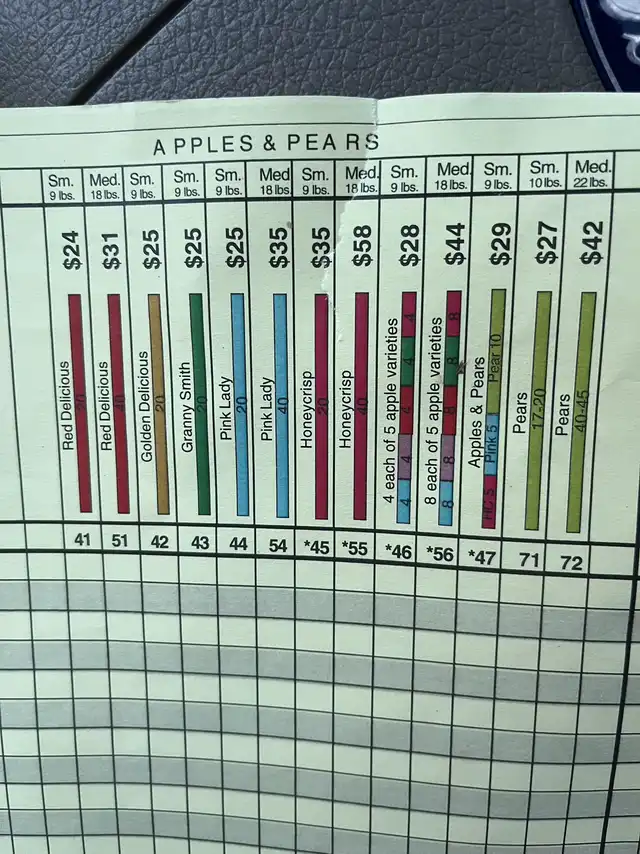 APPLES & PEARS
Sm. 9 lbs. $24 Red Delicious 20 41
Med. 18 lbs. $31 Red Delicious 40 51
Sm. 9 lbs. $25 Golden Delicious 20 42
Sm. 9 lbs. $25 Granny Smith 20 43
Sm. 9 lbs. $25 Pink Lady 20 44
Med. 18 lbs. $35 Pink Lady 40 54
Sm. 9 lbs. $35 Honeycrisp 20 *45
Med. 18 lbs. $58 Honeycrisp 40 *55
Sm. 9 lbs. $28 4 each of 5 apple varieties 4 4 4 4 4 *46
Med. 18 lbs. $44 8 each of 5 apple varieties 8 8 8 8 8 *56
Sm. 9 lbs. $29 Apples & Pears 5 Pink 5 Pear 10 *47
Sm. 10 lbs. $27 Pears 17-20 71
Med. 22 lbs. $42 Pears 40-45 72